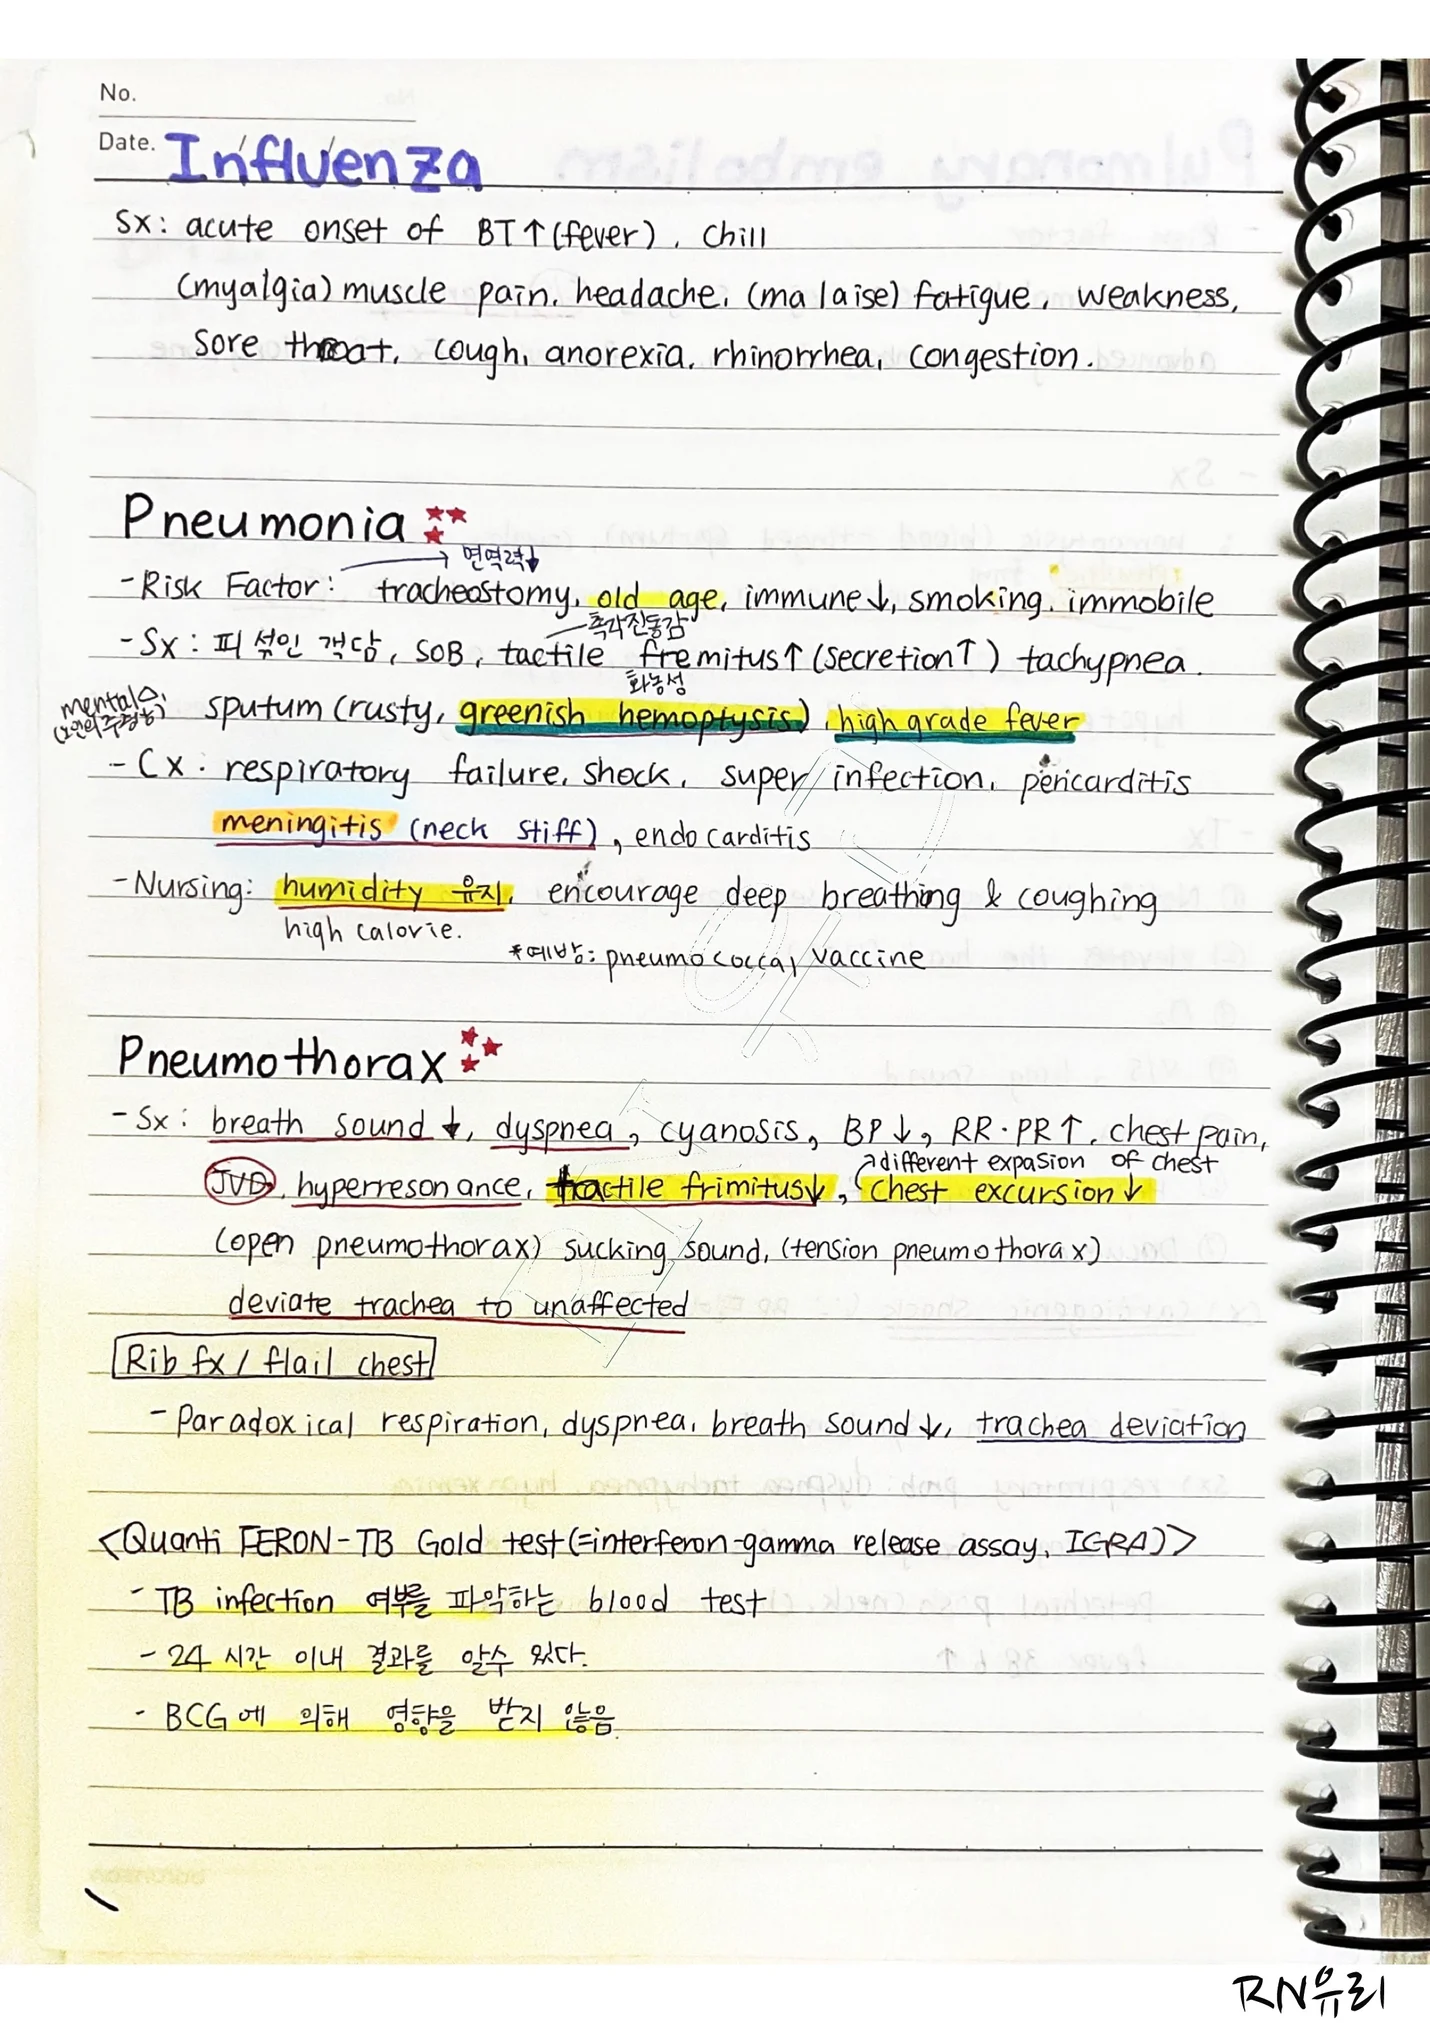 No.
Date. Influenza
Sx: acute onset of BT↑(fever), chill
(myalgia) muscle pain, headache, (malaise) fatigue, weakness,
sore throat, cough, anorexia, rhinorrhea, congestion.
Pneumonia
→ 면역력↓
- Risk Factor: tracheostomy, old age, immune↓, smoking, immobile
촉각진동감
- Sx: 피 섞인 객담, SOB, tactile fremitus↑(secretion↑) tachypnea.
화농성
mental△,
sputum (rusty, greenish hemoptysis), high grade fever
- Cx: respiratory failure, shock, super infection, pericarditis
meningitis (neck stiff), endocarditis
- Nursing: humidity 유지, encourage deep breathing & coughing
high calorie.
*예방: pneumococcal vaccine
Pneumothorax
- Sx: breath sound↓, dyspnea, cyanosis, BP↓, RR·PR↑, chest pain,
different expasion of chest
JVD, hyperresonance, tactile frimitus↓, chest excursion↓
(open pneumothorax) sucking sound, (tension pneumothorax)
deviate trachea to unaffected
Rib fx / flail chest
- Paradoxical respiration, dyspnea, breath sound↓, trachea deviation
<Quanti FERON-TB Gold test (=interferon-gamma release assay, IGRA)>
- TB infection 여부를 파악하는 blood test
- 24 시간 이내 결과를 알수 있다.
- BCG에 의해 영향을 받지 않음.
RN유리